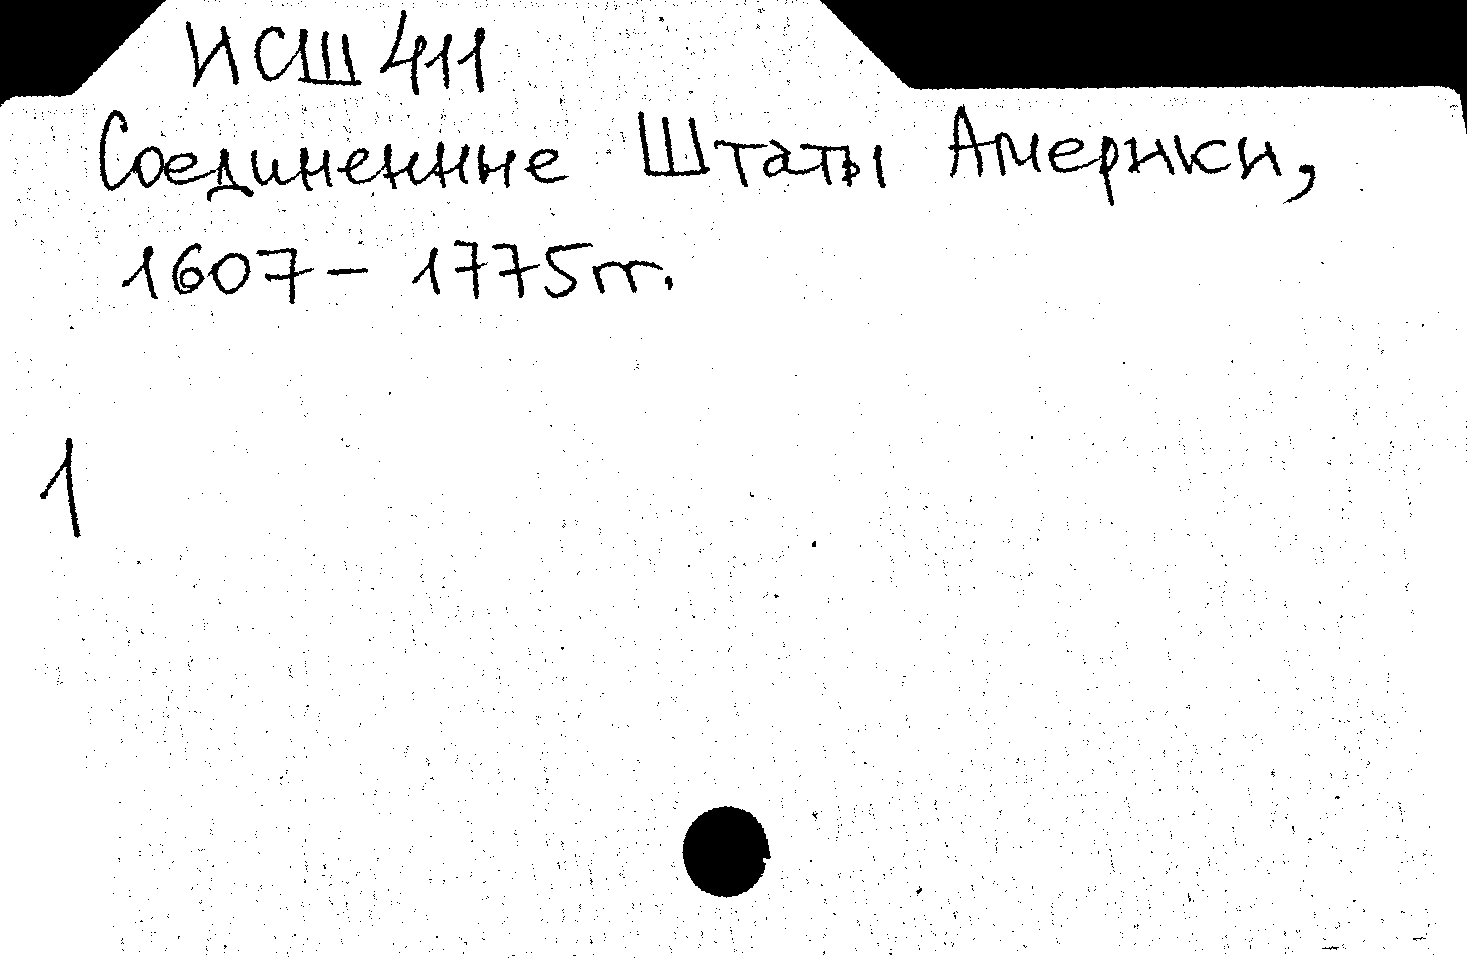 ИСШ 411
Соединенные Штаты Америки,
1607 - 1775 гг.
1